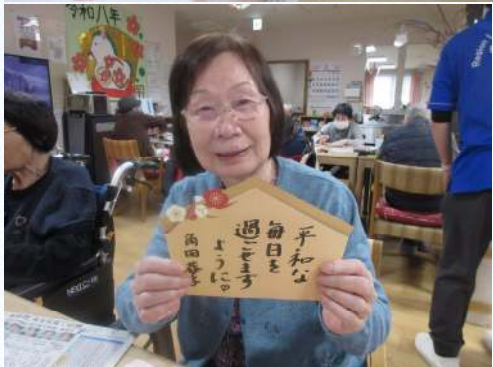 令和八年
平和な
毎日を
過ごせます
ように♡